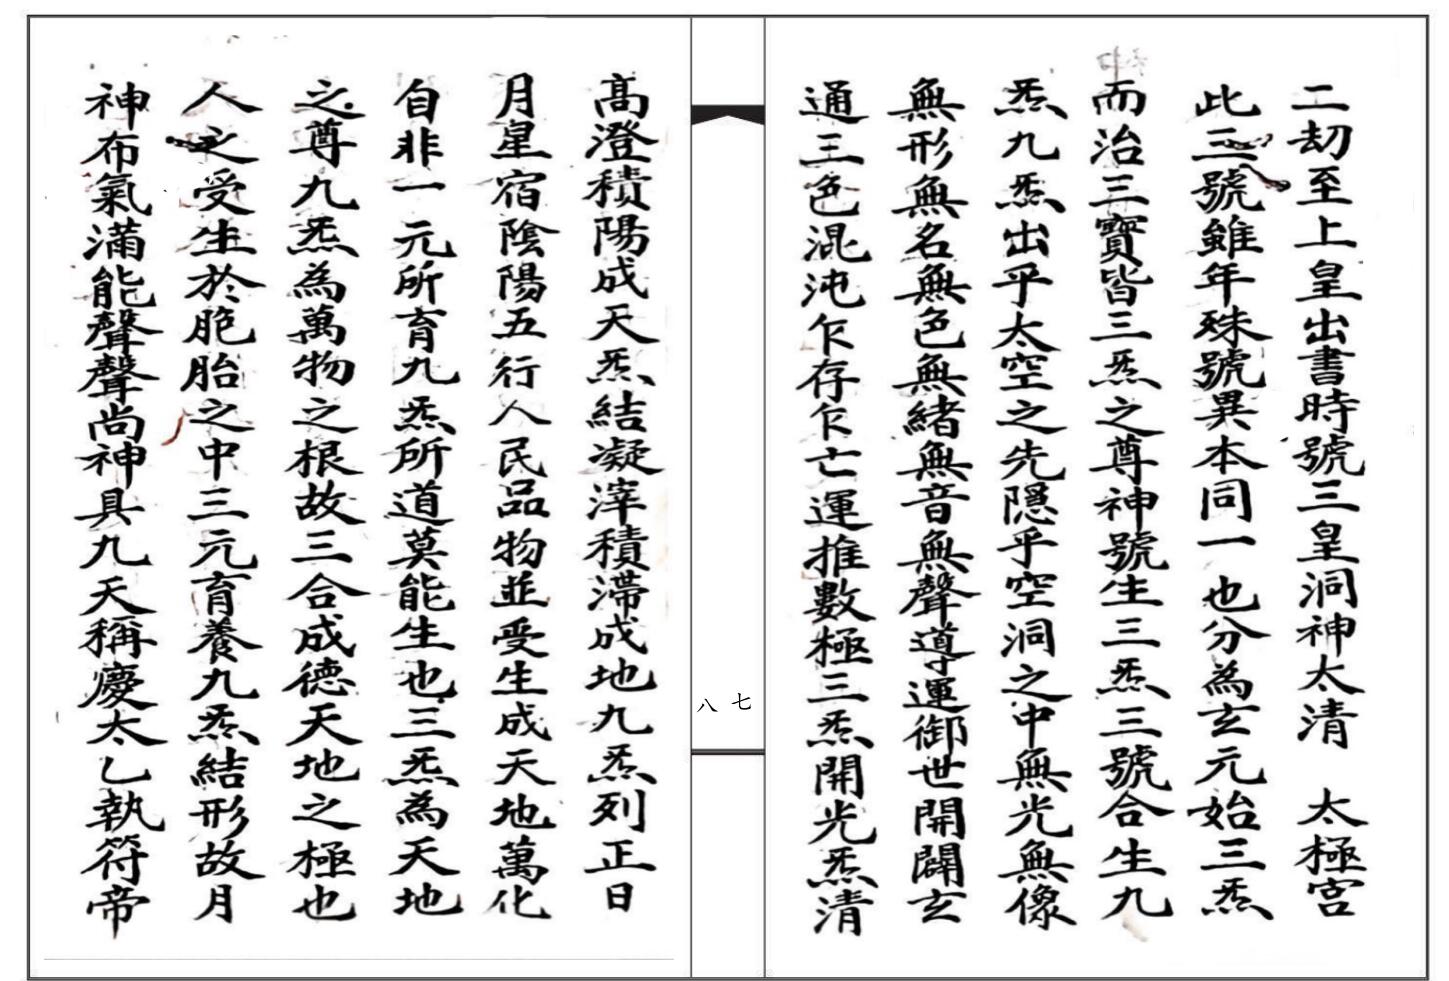 二刧至上皇出書時號三皇洞神太清　太極宮
此三號雖年殊號異本同一也分為玄元始三炁
而治三寶皆三炁之尊神號生三炁三號合生九
炁九炁出乎太空之先隱乎空洞之中無光無像
無形無名無色無緒無音無聲導運御世開闢玄
通三色混沌乍存乍亡運推數極三炁開光炁清
七
八
高澄積陽成天炁結凝滓積滯成地九炁列正日
月星宿陰陽五行人民品物並受生成天地萬化
自非一元所育九炁所導莫能生也三炁為天地
之尊九炁為萬物之根故三合成德天地之極也
人之受生於胞胎之中三元育養九炁結形故月
神布氣滿能聲聲尚神具九天稱慶太乙執符帝